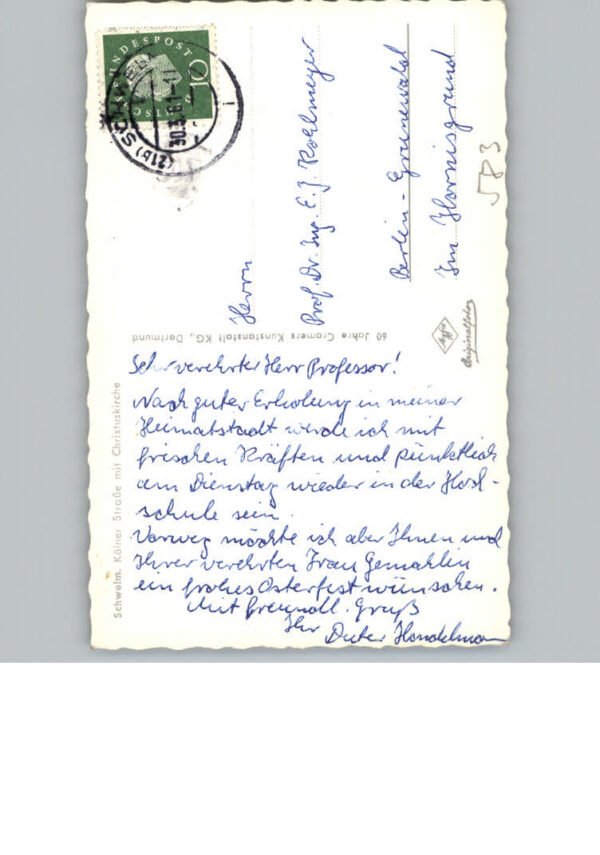 Sehr verehrter Herr Professor!
Nach guter Erholung in meiner
Heimatstadt werde ich mit
frischen Kräften und pünktlich
am Dienstag wieder in der Hoch-
schule sein.
Vorweg möchte ich aber Ihnen und
Ihrer verehrten Frau Gemahlin
ein frohes Osterfest wünschen.
Mit freundl. Gruß
Ihr Dieter
Herrn
Prof. Dr. Ing. E. J. Kohlmeyer
Berlin-Grunewald
Im Hornisgrund
583
DEUTSCHE BUNDESPOST
10
(21b)
30.3.61
Schwelm. Kölner Straße mit Christuskirche
60 Jahre Cramers Kunstanstalt KG., Dortmund
Agfa
Originalfoto